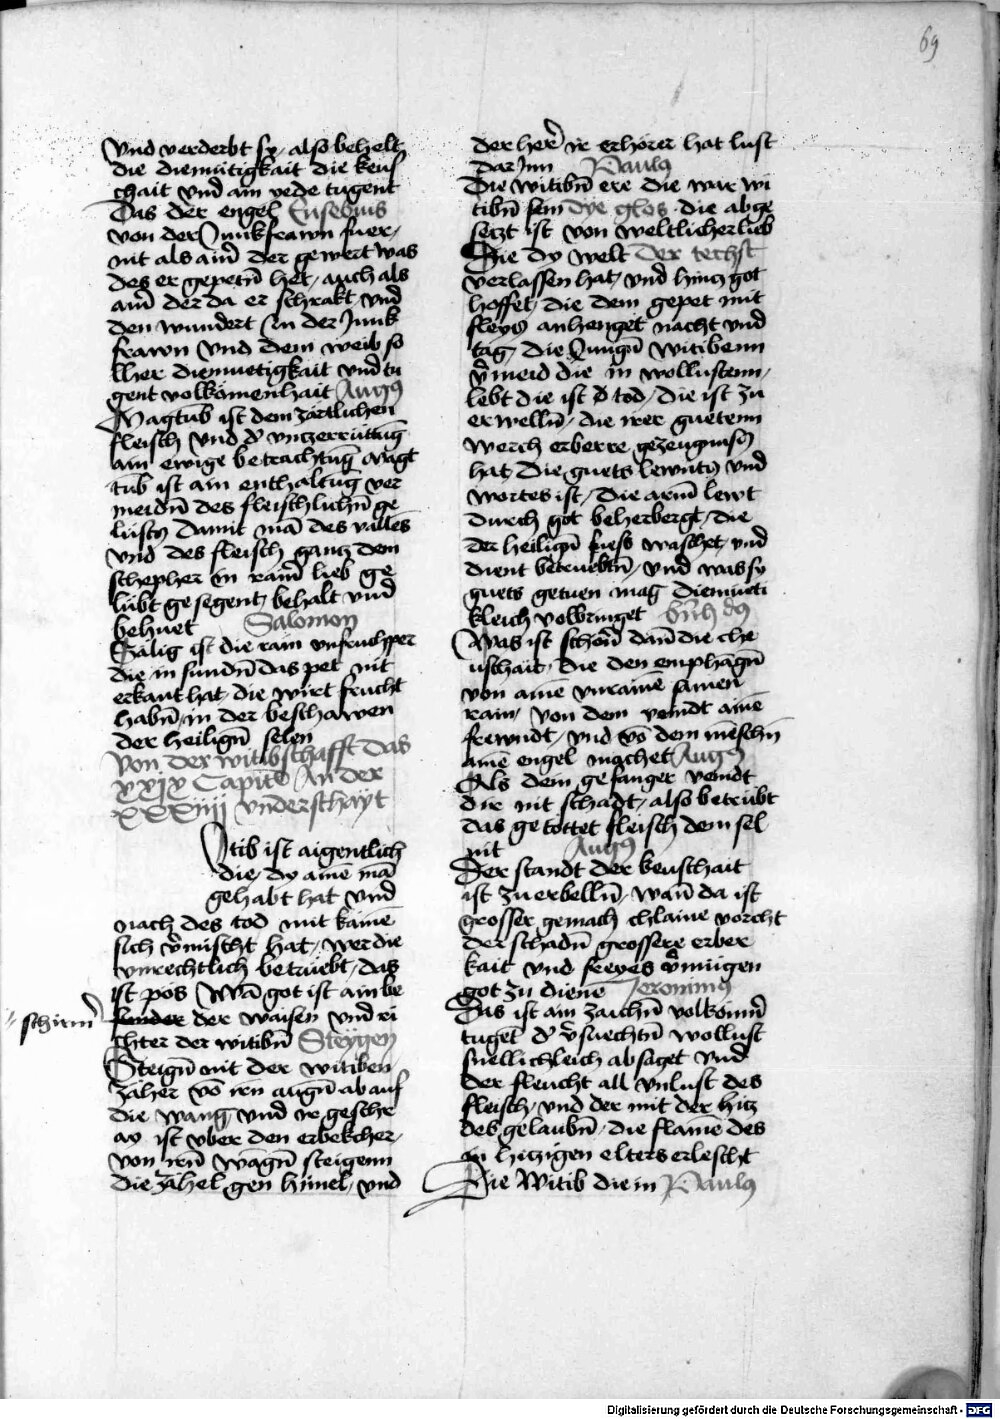 69
Vnd verderbt sy, also behelt
die diemütigkait die keus
chait vnd ain yede tugent
Das der engel Eusebius
von der Junkfrawn fuer,
nit als ainer der gewert was
des er gepeten het, auch als
ainer der da er schrakt, vnd
den wundert In der Junk
frawn Vnd dem weib so
lher diemuetigkait vnd tu
gent volkömenhait Augꝰ
Magtūb ist dem zärtlichen
fleisch vnd der vnczerrüttūg
ain ewige betrachtūg Magt
tūb ist ain enthaltūg ver
meidn̄ des fleischlichn̄ ge
lüsts damit mā des valles
vnd des fleisch gantz dem
schepher in rainer lieb ge
lübt gesegent, behalt vnd
behuet Salomon
Sälig ist die rain vnfruchper
die in sundn̄ das pet nit
erkant hat, die wirt frucht
habn̄, in der beschawen
der heilign̄ selen
Von der witibschafft das
xxix Capitel In der
xxxiiij vnderschayt
Itib ist aigentlich
die, dy ainē mā
gehabt hat vnd
nach des tod mit kainē
sich v̄mischt hat, wer die
vnrechtlich betrüebt, das
ist pös Wā got ist ain be
schirmer
sunder der waisen vnd ri
chter der witibn̄ Steygen
Steign̄ nit der witiben
zäher vō iren augn̄ ab auf
die wang vnd ir geschr
ay ist vber den erbekcher,
von iren̄ wāgn̄ steigenn
die zähel gen himel, vnd
der herr ir erhörer hat lust
darInn Paulus
Die witibn̄ ere die war wi
tibn̄ sein dye glos. die abge
setzt ist von weltlicher lieb
Die dy welt Der techst
verlassen hat, vnd hintz got
hoffet, die dem gepet mit
fleys anhenget nacht vnd
tag, die Jungn̄ witibenn
v̄meid die in wollustenn,
lebt die ist der tod, die ist zu
erwelln̄, die irer guetenn
werch erberre gezeugnusn̄
hat, Die guets lewnts vnd
wortes ist, Die arm̄ lewt
durch got beherbergt, die
der heilign̄ fuess waschet, vnd
dient betrüebtn̄, vnd was sy
guets getuen mag diemueti
kleich volbringet bn̄h dꝰ
Was ist schoner dan̄ die che
uschait, die den emphāgn̄
von ainē vnrainē samen
rain, von dem veindt ainē
frewndt, vnd vō dem mēschn̄
ainē engel machet Augꝰ
Als dem gefanger veindt
die nit schadt, also betrübt
das getöttet fleisch dem sel
nit Augꝰ
Der standt der keuschait
ist zu erbelln̄, wan̄ da ist
grosser gemach chlaine vorcht
der schadn̄ grossere erber
kait vnd freyes v̄mügen
got zu dienē Jeronimꝰ
Das ist ain zaichn̄ volkömner
tuget der v̄suechtn̄ wollust
snellichleich absaget vnd
der fleucht all vnlust des
fleisch, vnd der mit der hitz
des gelaubn̄, die flamē des
hitzigen elters erlescht
Die Witib die in Paulus
Digitalisierung gefördert durch die Deutsche Forschungsgemeinschaft - DFG